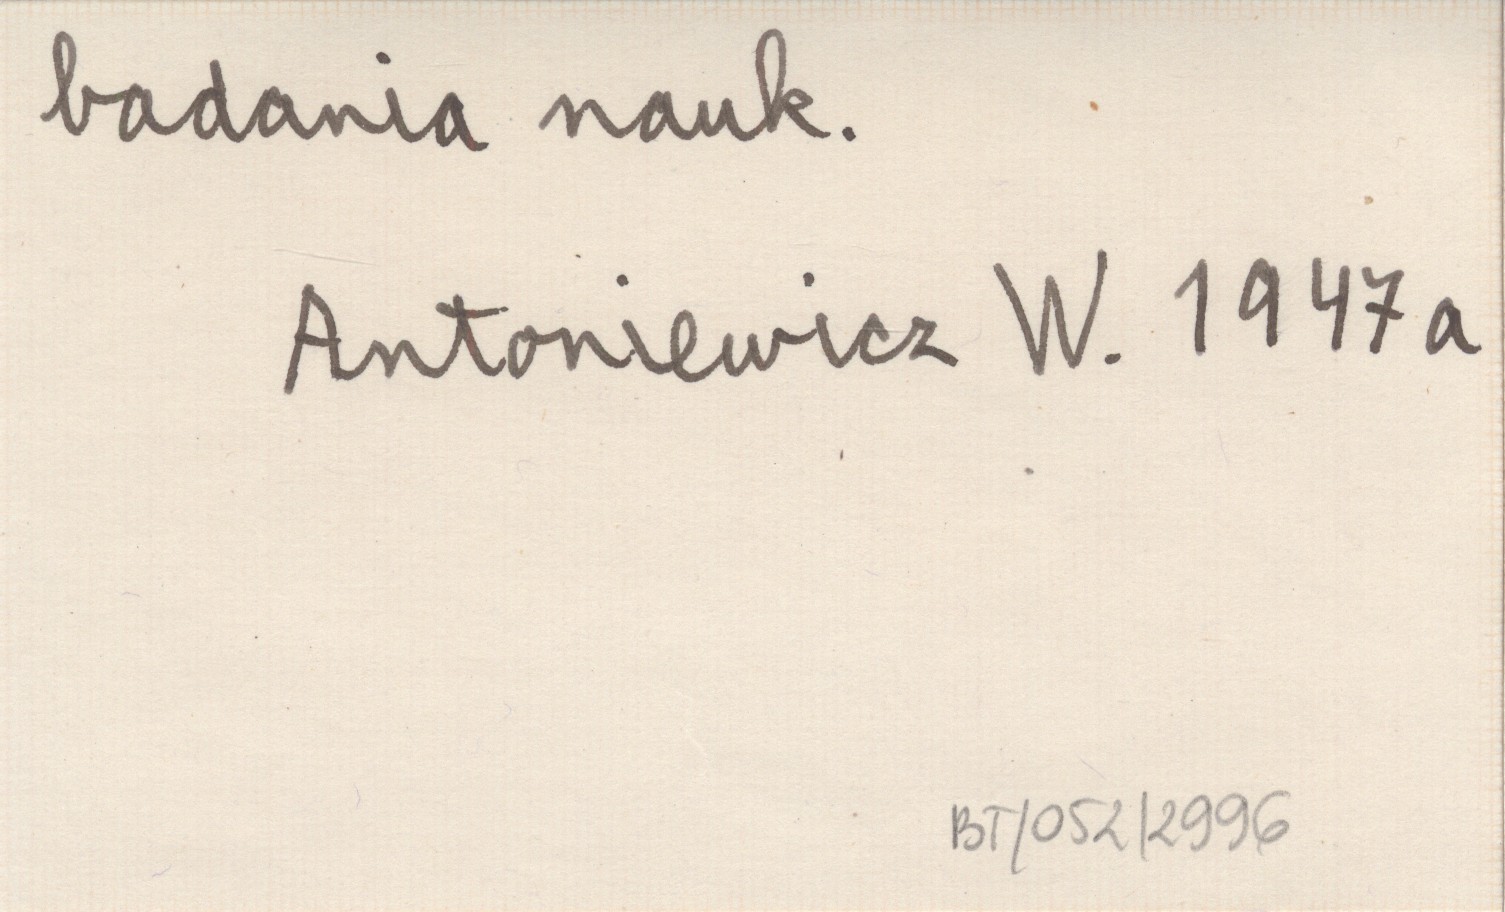 badania nauk.
Antoniewicz W. 1947a
BT/052/2996